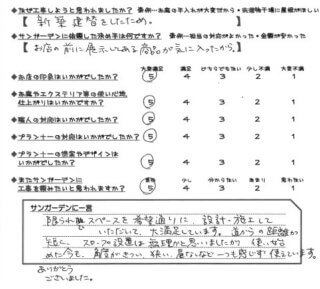 ◆なぜ工事しようと思われましたか？ 条例…お庭の手入れが大変だから・洗濯物干場に屋根がほしい
【 新築建替をしたため。 】
◆サンガーデンに依頼した決め手は何ですか？ 条例…担当の対応がよかった・金額が安かった
【 お店の前に展示してある商品が気に入ったから。 】
大変満足 満足 どちらでもない 少し不満 大変不満
◆お店の印象はいかがでしたか？ 5 4 3 2 1
◆お庭やエクステリア等の使い心地、
仕上がりはいかがですか？ 5 4 3 2 1
◆職人の対応はいかがでしたか？ 5 4 3 2 1
◆プランナーの対応はいかがでしたか？ 5 4 3 2 1
◆プランナーの提案やデザインは
いかがでしたか？ 5 4 3 2 1
◆またサンガーデンに
工事を頼みたいと思われますか？ 5 4 3 2 1
少し 分からない あまり 思わない
サンガーデンに一言
限られたスペースを希望通りに、設計・施工して
いただいて、大満足しています。道からの距離が
短く、スロープ設置は無理かと思いましたが、使い始
めた今も、角度がきつい、狭い、など一つも感じず使えています。
ありがとう
ございました。